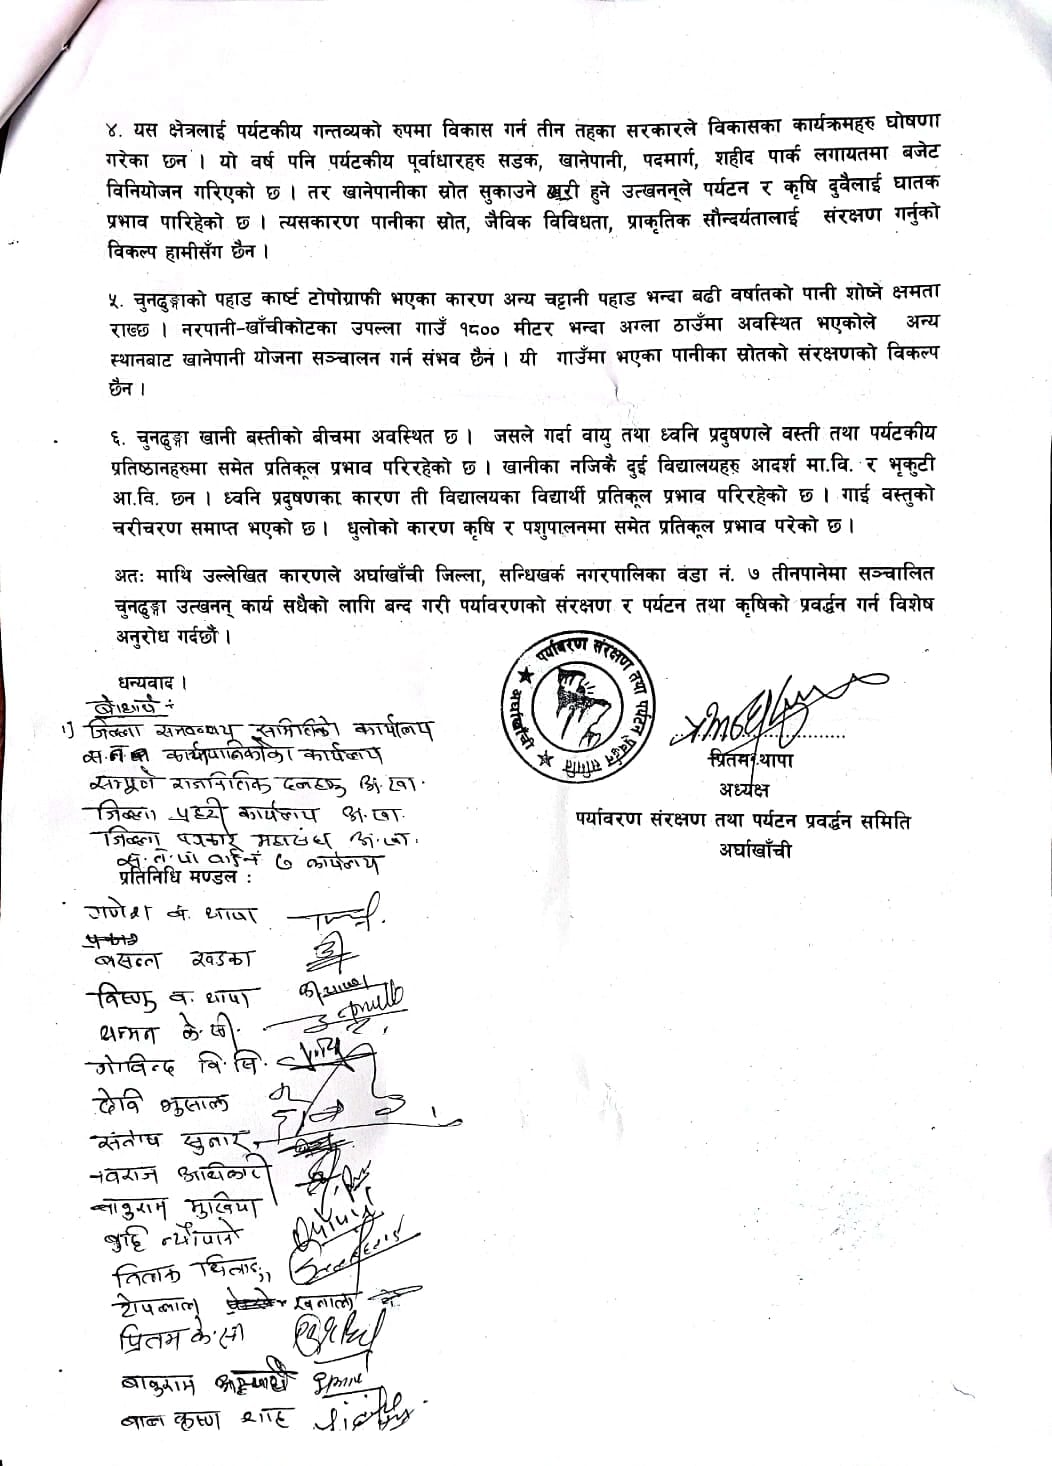 ४. यस क्षेत्रलाई पर्यटकीय गन्तव्यको रुपमा विकास गर्न तीन तहका सरकारले विकासका कार्यक्रमहरु घोषणा
गरेका छन । यो वर्ष पनि पर्यटकीय पूर्वाधारहरु सडक, खानेपानी, पदमार्ग, शहीद पार्क लगायतमा बजेट
विनियोजन गरिएको छ । तर खानेपानीका स्रोत सुकाउने हुने उत्खनन्ले पर्यटन र कृषि दुवैलाई घातक
प्रभाव पारिहेको छ । त्यसकारण पानीका स्रोत, जैविक विविधता, प्राकृतिक सौन्दर्यतालाई संरक्षण गर्नुको
विकल्प हामीसँग छैन ।
५. चुनढुङ्गाको पहाड कार्ष्ट टोपोग्राफी भएका कारण अन्य चट्टानी पहाड भन्दा बढी वर्षातको पानी शोष्ने क्षमता
राख्छ । नरपानी-खाँचीकोटका उपल्ला गाउँ १८०० मीटर भन्दा अग्ला ठाउँमा अवस्थित भएकोले अन्य
स्थानबाट खानेपानी योजना सञ्चालन गर्न संभव छैन । यी गाउँमा भएका पानीका स्रोतको संरक्षणको विकल्प
छैन ।
६. चुनढुङ्गा खानी बस्तीको बीचमा अवस्थित छ । जसले गर्दा वायु तथा ध्वनि प्रदुषणले वस्ती तथा पर्यटकीय
प्रतिष्ठानहरुमा समेत प्रतिकूल प्रभाव परिरहेको छ । खानीका नजिकै दुई विद्यालयहरु आदर्श मा.वि. र भृकुटी
आ.वि. छन । ध्वनि प्रदुषणका कारण ती विद्यालयका विद्यार्थी प्रतिकूल प्रभाव परिरहेको छ । गाई वस्तुको
चरीचरण समाप्त भएको छ । धुलोको कारण कृषि र पशुपालनमा समेत प्रतिकूल प्रभाव परेको छ ।
अतः माथि उल्लेखित कारणले अर्घाखाँची जिल्ला, सन्धिखर्क नगरपालिका वडा नं. ७ तीनपानेमा सञ्चालित
चुनढुङ्गा उत्खनन् कार्य सधैको लागि बन्द गरी पर्यावरणको संरक्षण र पर्यटन तथा कृषिको प्रवर्द्धन गर्न विशेष
अनुरोध गर्दछौं ।
पर्यावरण संरक्षण तथा पर्यटन प्रवर्द्धन समिति
अर्घाखाँची
धन्यवाद ।
बोधार्थ :
१) जिल्ला समन्वय समितिको कार्यालय
कार्यपालिकाको कार्यालय
सम्पूर्ण राजनितिक दलहरु अ.खा.
जिल्ला प्रहरी कार्यालय अ.खा.
जिल्ला पत्रकार महासंघ अ.खा.
७ कार्यालय
प्रितम थापा
अध्यक्ष
पर्यावरण संरक्षण तथा पर्यटन प्रवर्द्धन समिति
अर्घाखाँची
प्रतिनिधि मण्डल :
गणेश ब. थापा
बसन्त खडका
विष्णु ब. थापा
के.सी.
गोविन्द वि.सि.
देवि भुसाल
संतोष सुनार
नवराज अधिकारी
बाबुराम मुखिया
प्रितम के.सी
बाबुराम
बाल कृष्ण शाह